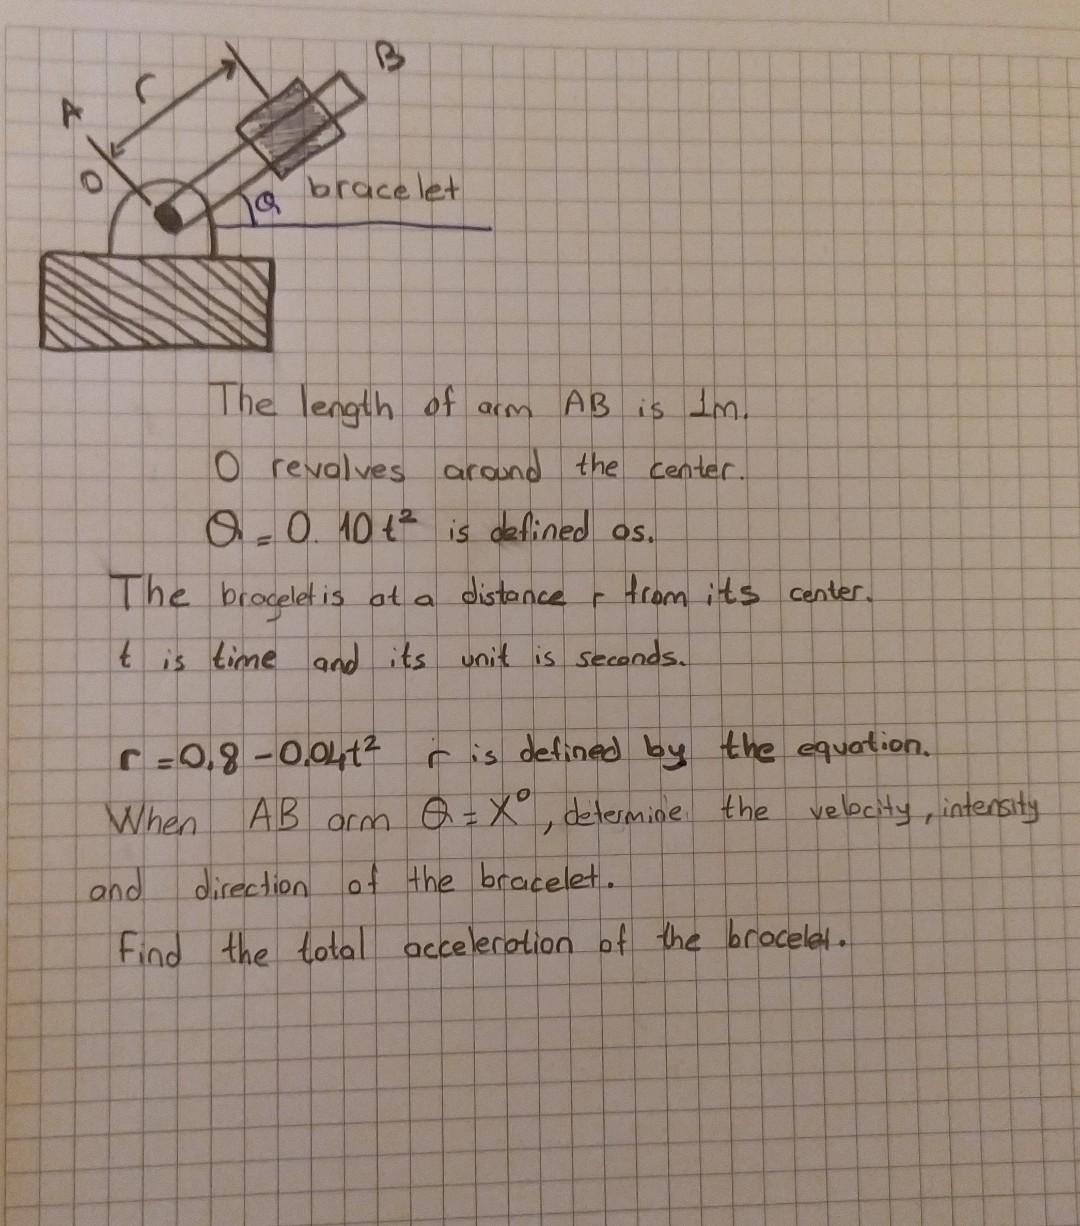 B
r
A
O
bracelet
θ
The length of arm AB is 1m.
O revolves around the center.
θ = 0.10t² is defined as.
The bracelet is at a distance r from its center.
t is time and its unit is seconds.
r = 0,8 - 0.04t² r is defined by the equation.
When AB arm θ = X°, determine the velocity, intensity
and direction of the bracelet.
Find the total acceleration of the bracelet.